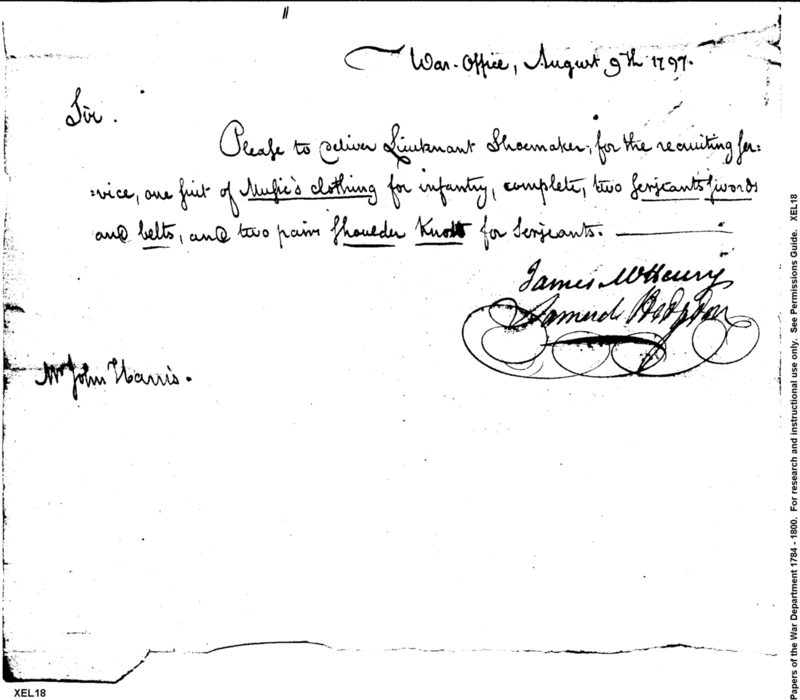 War-Office, August 9th 1797.
Sir.
Please to deliver Lieutenant Shoemaker, for the recruiting ser=
=vice, one suit of Music's clothing for infantry, complete, two Serjeants swords
and belts, and two pairs shoulder Knots for Serjeants.
James McHenry
Samuel Hodgdon
Mr John Harris.
XEL18
Papers of the War Department 1784 - 1800. For research and instructional use only. See Permissions Guide. XEL18